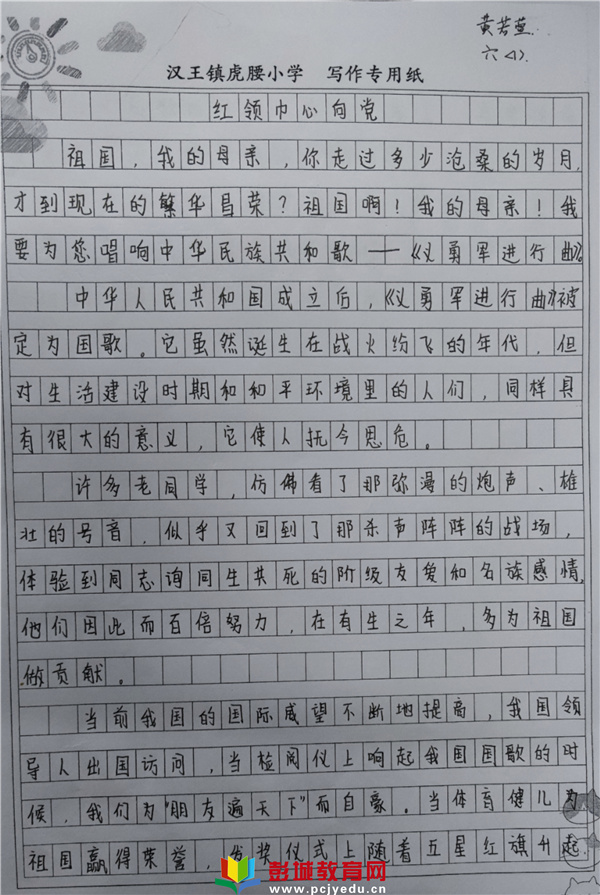 黄若萱
六<1>
汉王镇虎腰小学 写作专用纸
红领巾心向党
祖国，我的母亲，你走过多少沧桑的岁月，
才到现在的繁华昌荣？祖国啊！我的母亲！我
要为您唱响中华民族共和歌——《义勇军进行曲》。
中华人民共和国成立后，《义勇军进行曲》被
定为国歌。它虽然诞生在战火纷飞的年代，但
对生活建设时期和和平环境里的人们，同样具
有很大的意义，它使人抚今思危。
许多老同学，仿佛看了那弥漫的炮声、雄
壮的号音，似乎又回到了那杀声阵阵的战场，
体验到同志询同生共死的阶级友爱和名族感情，
他们因此而百倍努力，在有生之年，多为祖国
做贡献。
当前我国的国际威望不断地提高，我国领
导人出国访问，当检阅仪上响起我国国歌的时
候，我们为“朋友遍天下”而自豪。当体育健儿为
祖国赢得荣誉，发奖仪式上随着五星红旗升起
彭城教育网
www.pcjyedu.cn